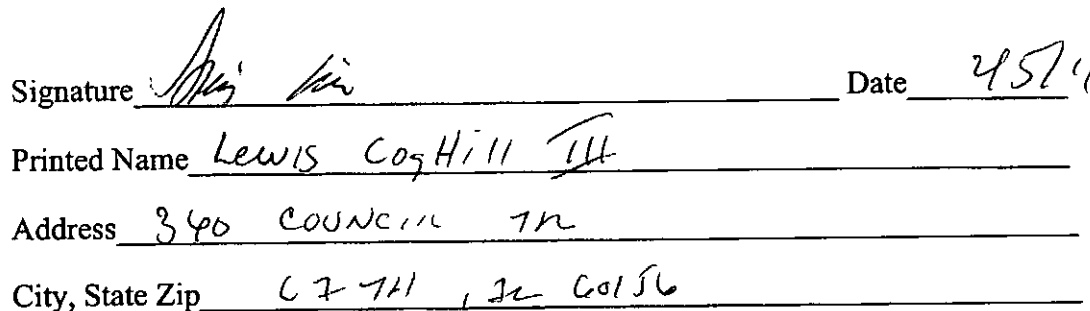 Signature Date
Printed Name Lewis CogHill III
Address 340 COUNCIL TR
City, State Zip , IL 60156